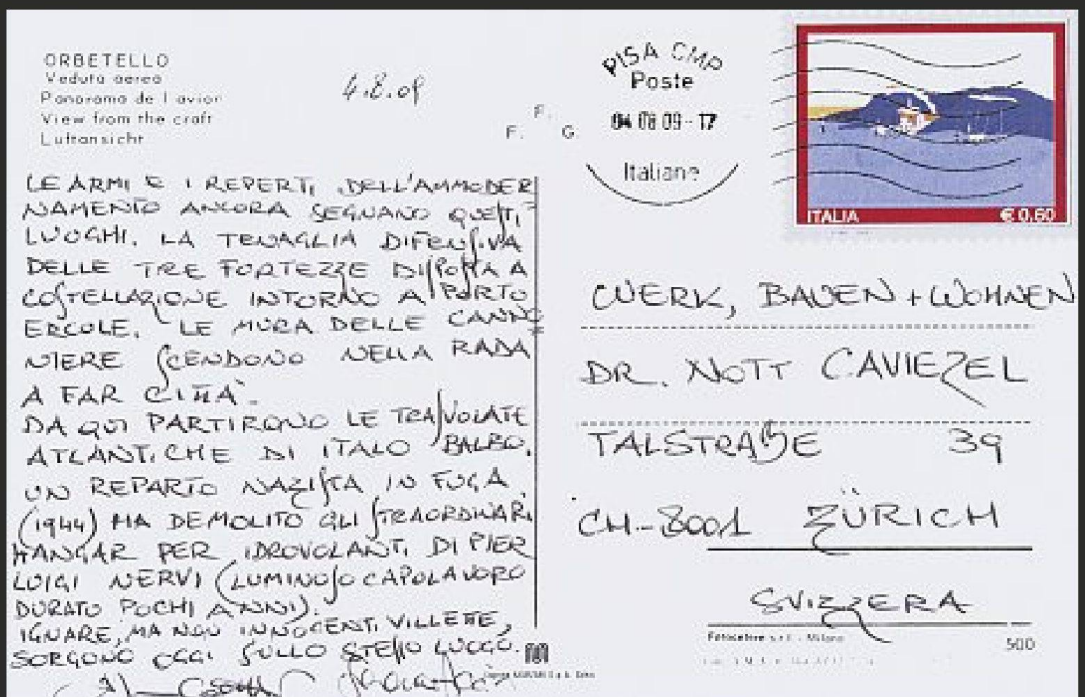 ORBETELLO
Veduta aerea
Panorama de l avion
View from the craft
Luftansicht
4.8.09
F. F. G.
PISA CMP
Poste
04 08 09 - 17
Italiane
ITALIA € 0,60
LE ARMI E I REPERTI DELL'AMMODER
NAMENTO ANCORA SEGNANO QUESTI
LUOGHI. LA TENAGLIA DIFENSIVA
DELLE TRE FORTEZZE DISPOSTA A
COSTELLAZIONE INTORNO A PORTO
ERCOLE. LE MURA DELLE CANNO
NIERE SCENDONO NELLA RADA
A FAR CITTÀ.
DA QUI PARTIRONO LE TRASVOLATE
ATLANTICHE DI ITALO BALBO.
UN REPARTO NAZISTA IN FUGA
(1944) HA DEMOLITO GLI STRAORDINARI
HANGAR PER IDROVOLANTI DI PIER
LUIGI NERVI (LUMINOSO CAPOLAVORO
DURATO POCHI ANNI).
IGNARE, MA NON INNOCENTI VILLETTE,
SORGONO OGGI SULLO STESSO LUOGO.
WERK, BAUEN + WOHNEN
DR. NOTT CAVIEZEL
TALSTRAßE 39
CH-8001 ZÜRICH
SVIZZERA
Fotocelere s.r.l. - Milano
500